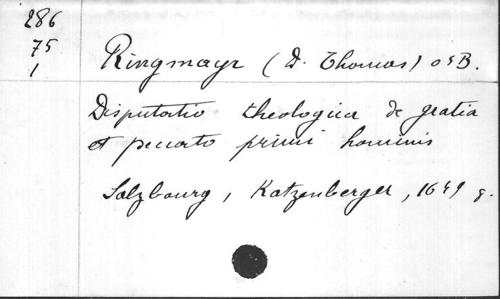 286
75
1
Ringmayr (D. Thomas) OSB.
Disputatio theologica de gratia
et peccato primi hominis
Salzbourg, Katzenberger, 1649